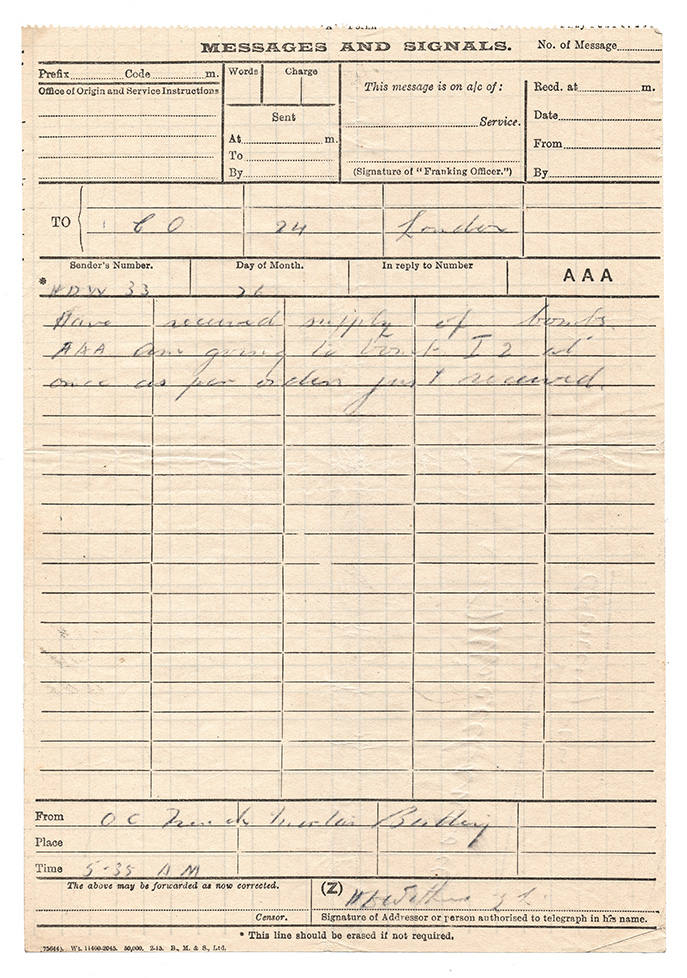 MESSAGES AND SIGNALS. No. of Message
Prefix Code m.
Office of Origin and Service Instructions
Words Charge
Sent
At m.
To
By
This message is on a/c of :
Service.
(Signature of "Franking Officer.")
Recd. at m.
Date
From
By
TO C O 24 London
Sender's Number. Day of Month. In reply to Number AAA
* HDW 33 26
Have received supply of bombs
AAA am going to bomb I 2 at
once as per orders just received.
From O C Trench Mortar Battery
Place
Time 5-35 A M
The above may be forwarded as now corrected. (Z)
Censor. Signature of Addressor or person authorised to telegraph in his name.
* This line should be erased if not required.
(75644). Wt. 11400-2045. 50,000. 2-15. B., M. & S., Ltd.